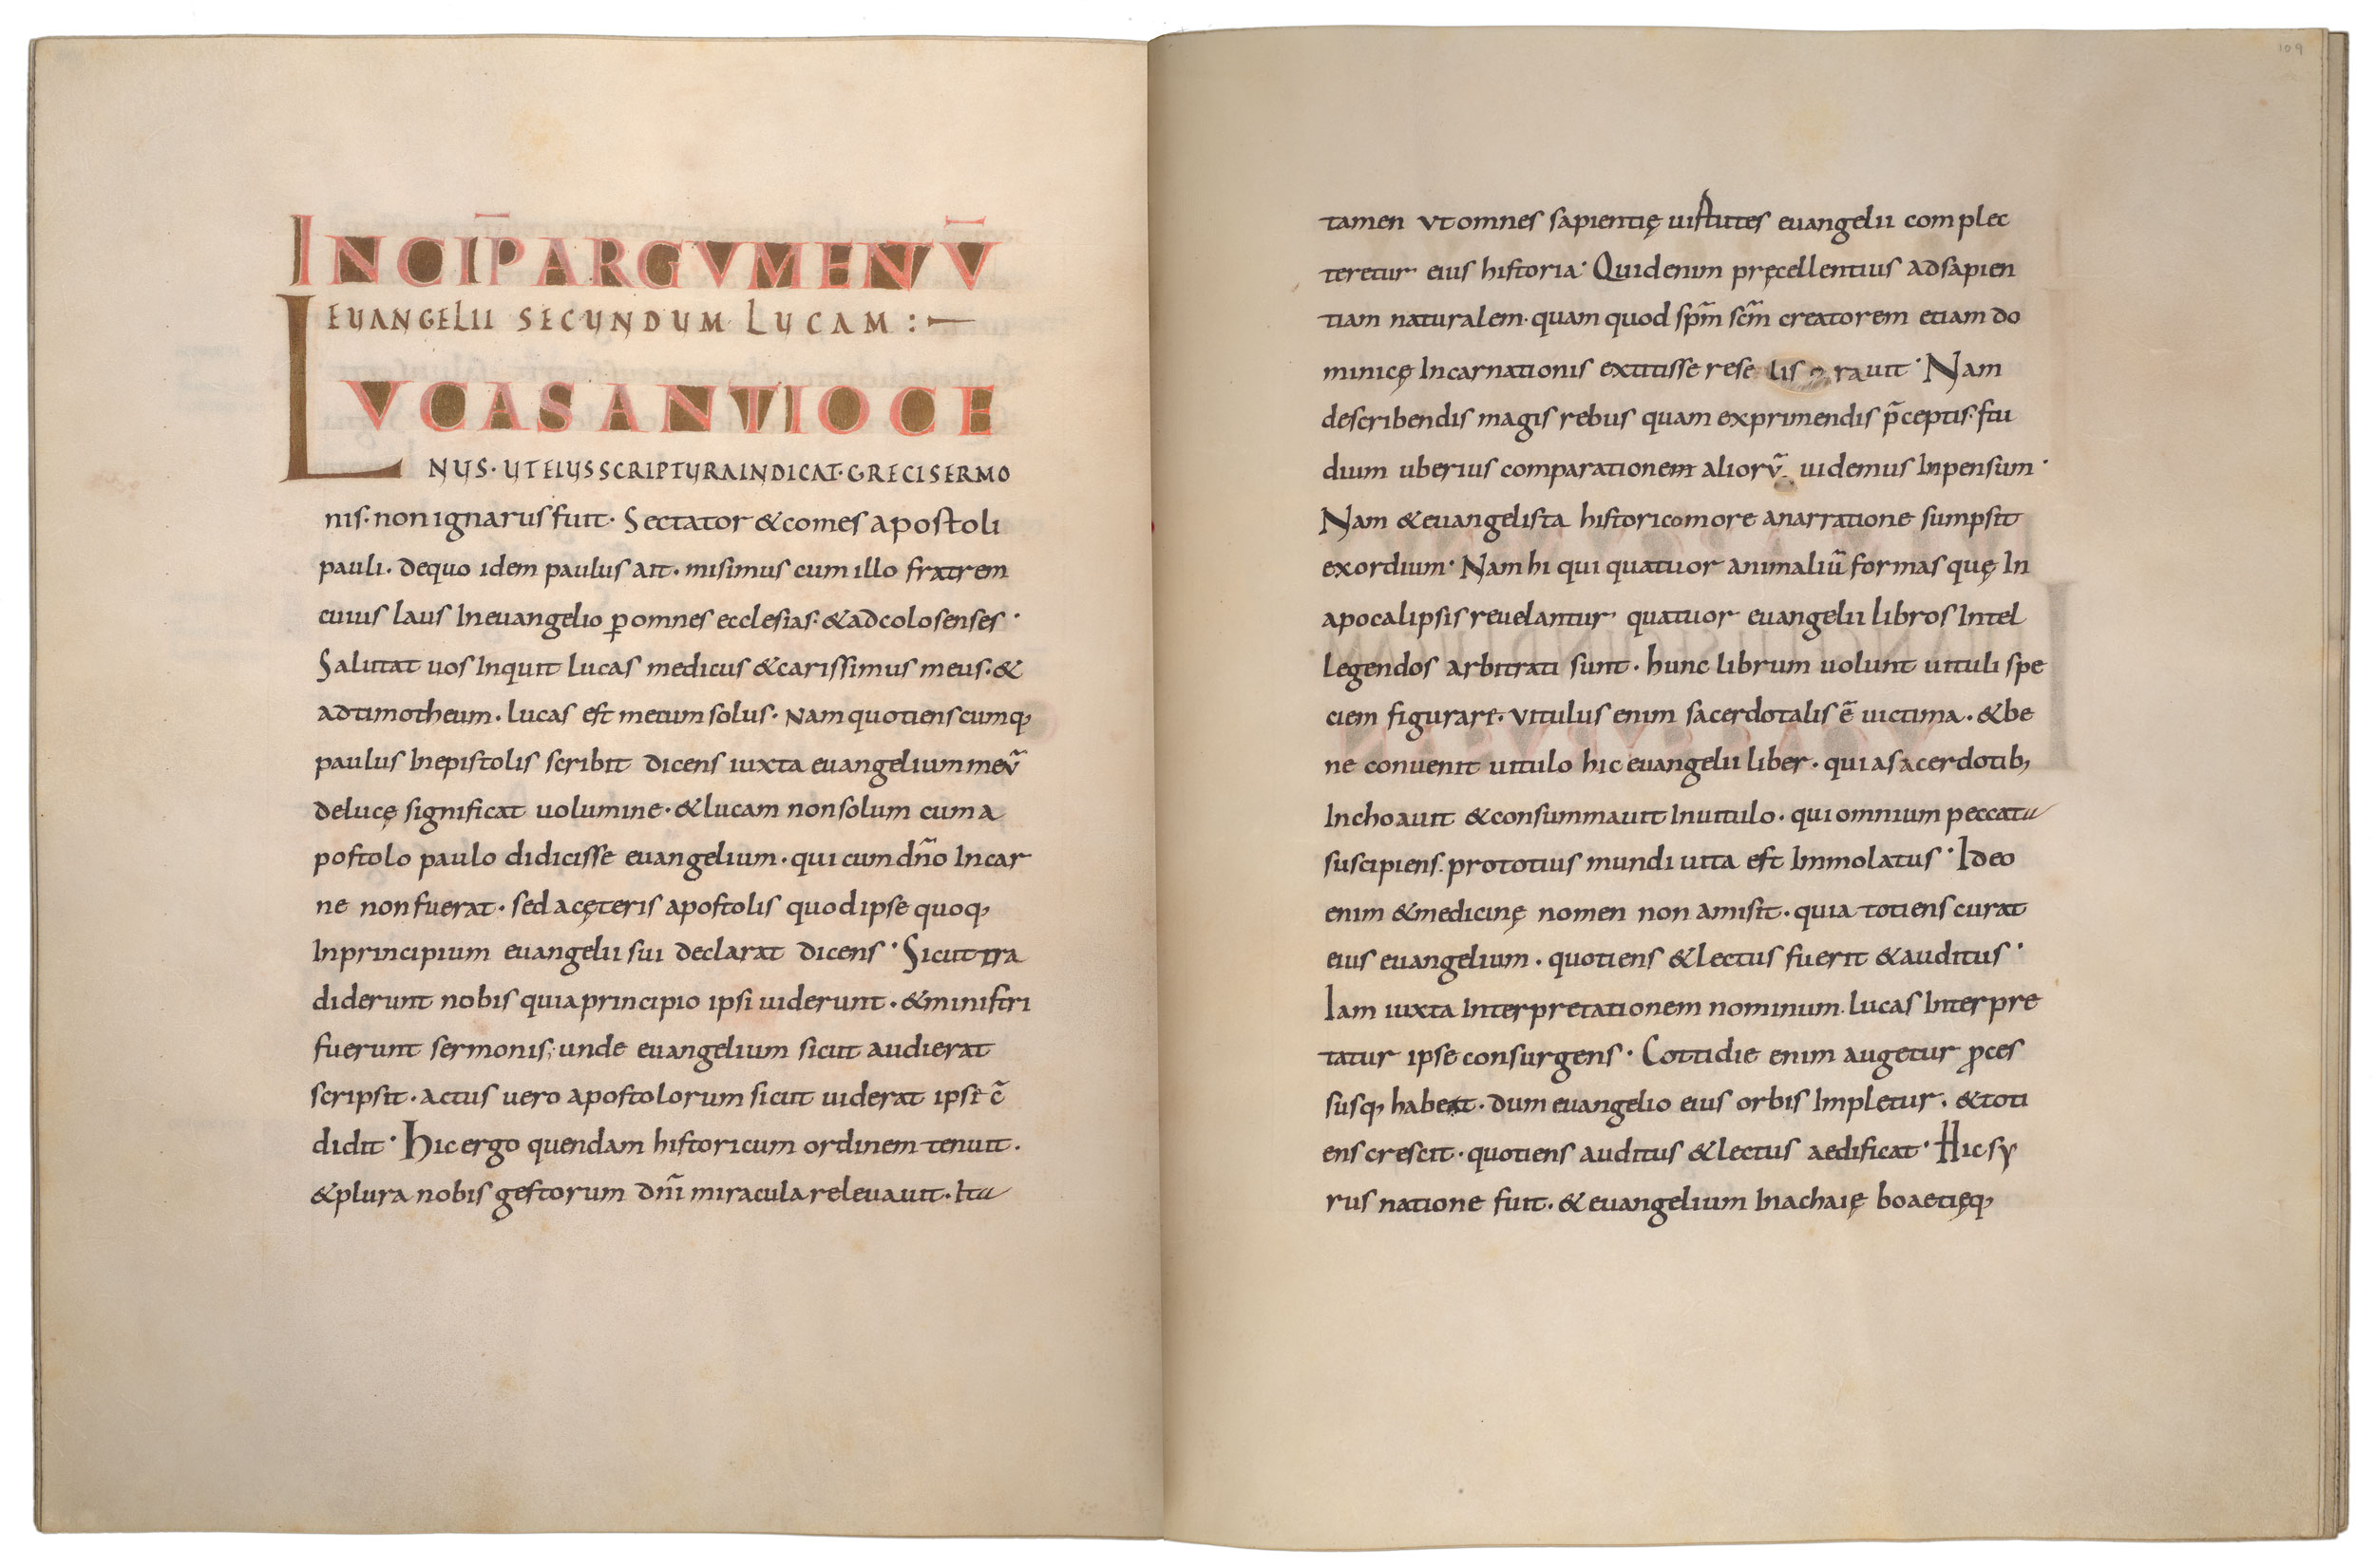 INCIP̄ ARGVMENV̄
EUANGELII SECUNDUM LUCAM :—
LVCAS ANTIOCE
NUS · UT EIUS SCRIPTURA INDICAT · GRECI SERMO
nis · non ignarus fuit · Sectator & comes apostoli
pauli · de quo idem paulus ait · misimus cum illo fratrem
cuius laus In euangelio ꝑ omnes ecclesias · & ad colosenses ·
Salutat uos Inquit lucas medicus & carissimus meus · &
ad timotheum · lucas est mecum solus · Nam quotienscumq,
paulus In epistolis scribit dicens iuxta euangelium meū
de lucę significat uolumine · & lucam non solum cum a
postolo paulo didicisse euangelium · qui cum dn̄o In car
ne non fuerat · sed a cęteris apostolis quod ipse quoq,
In principium euangelii sui declarat dicens · Sicut tra
diderunt nobis qui a principio ipsi uiderunt · & ministri
fuerunt sermonis; unde euangelium sicut audierat
scripsit · actus uero apostolorum sicut uiderat ipse c̄
didit · Hic ergo quendam historicum ordinem tenuit ·
& plura nobis gestorum dn̄i miracula releuauit · Ita
109
tamen ut omnes sapientię uirtutes euangelii complec
teretur eius historia · Quid enim pręcellentius ad sapien
tiam naturalem · quam quod sp̄m sc̄m creatorem etiam do
minicę Incarnationis extitisse rese rauit · Nam
describendis magis rebus quam exprimendis p̄ceptis · stu
dium uberius comparationem aliorū uidemus Inpensum ·
Nam & euangelista historico more a narratione sumpsit
exordium · Nam hi qui quatuor animaliū formas quę In
apocalipsis reuelantur quatuor euangelii libros Intel
legendos arbitrati sunt · hunc librum uolunt uituli spe
ciem figurare · Vitulus enim sacerdotalis ē uictima · & be
ne conuenit uitulo hic euangelii liber · qui a sacerdotib,
Inchoauit & consummauit In uitulo · qui omnium peccata
suscipiens · pro totius mundi uita est Immolatus · Ideo
enim & medicinę nomen non amisit · quia totiens curat
eius euangelium · quotiens & lectus fuerit & auditus ·
Iam iuxta Interpretationem nominum · lucas Interpre
tatur ipse consurgens · Cottidie enim augetur ꝓces
susq, habet · dum euangelio eius orbis Impletur · & toti
ens crescit · quotiens auditus & lectus aedificat · Hic sy
rus natione fuit · & euangelium In achaię boaetięq,